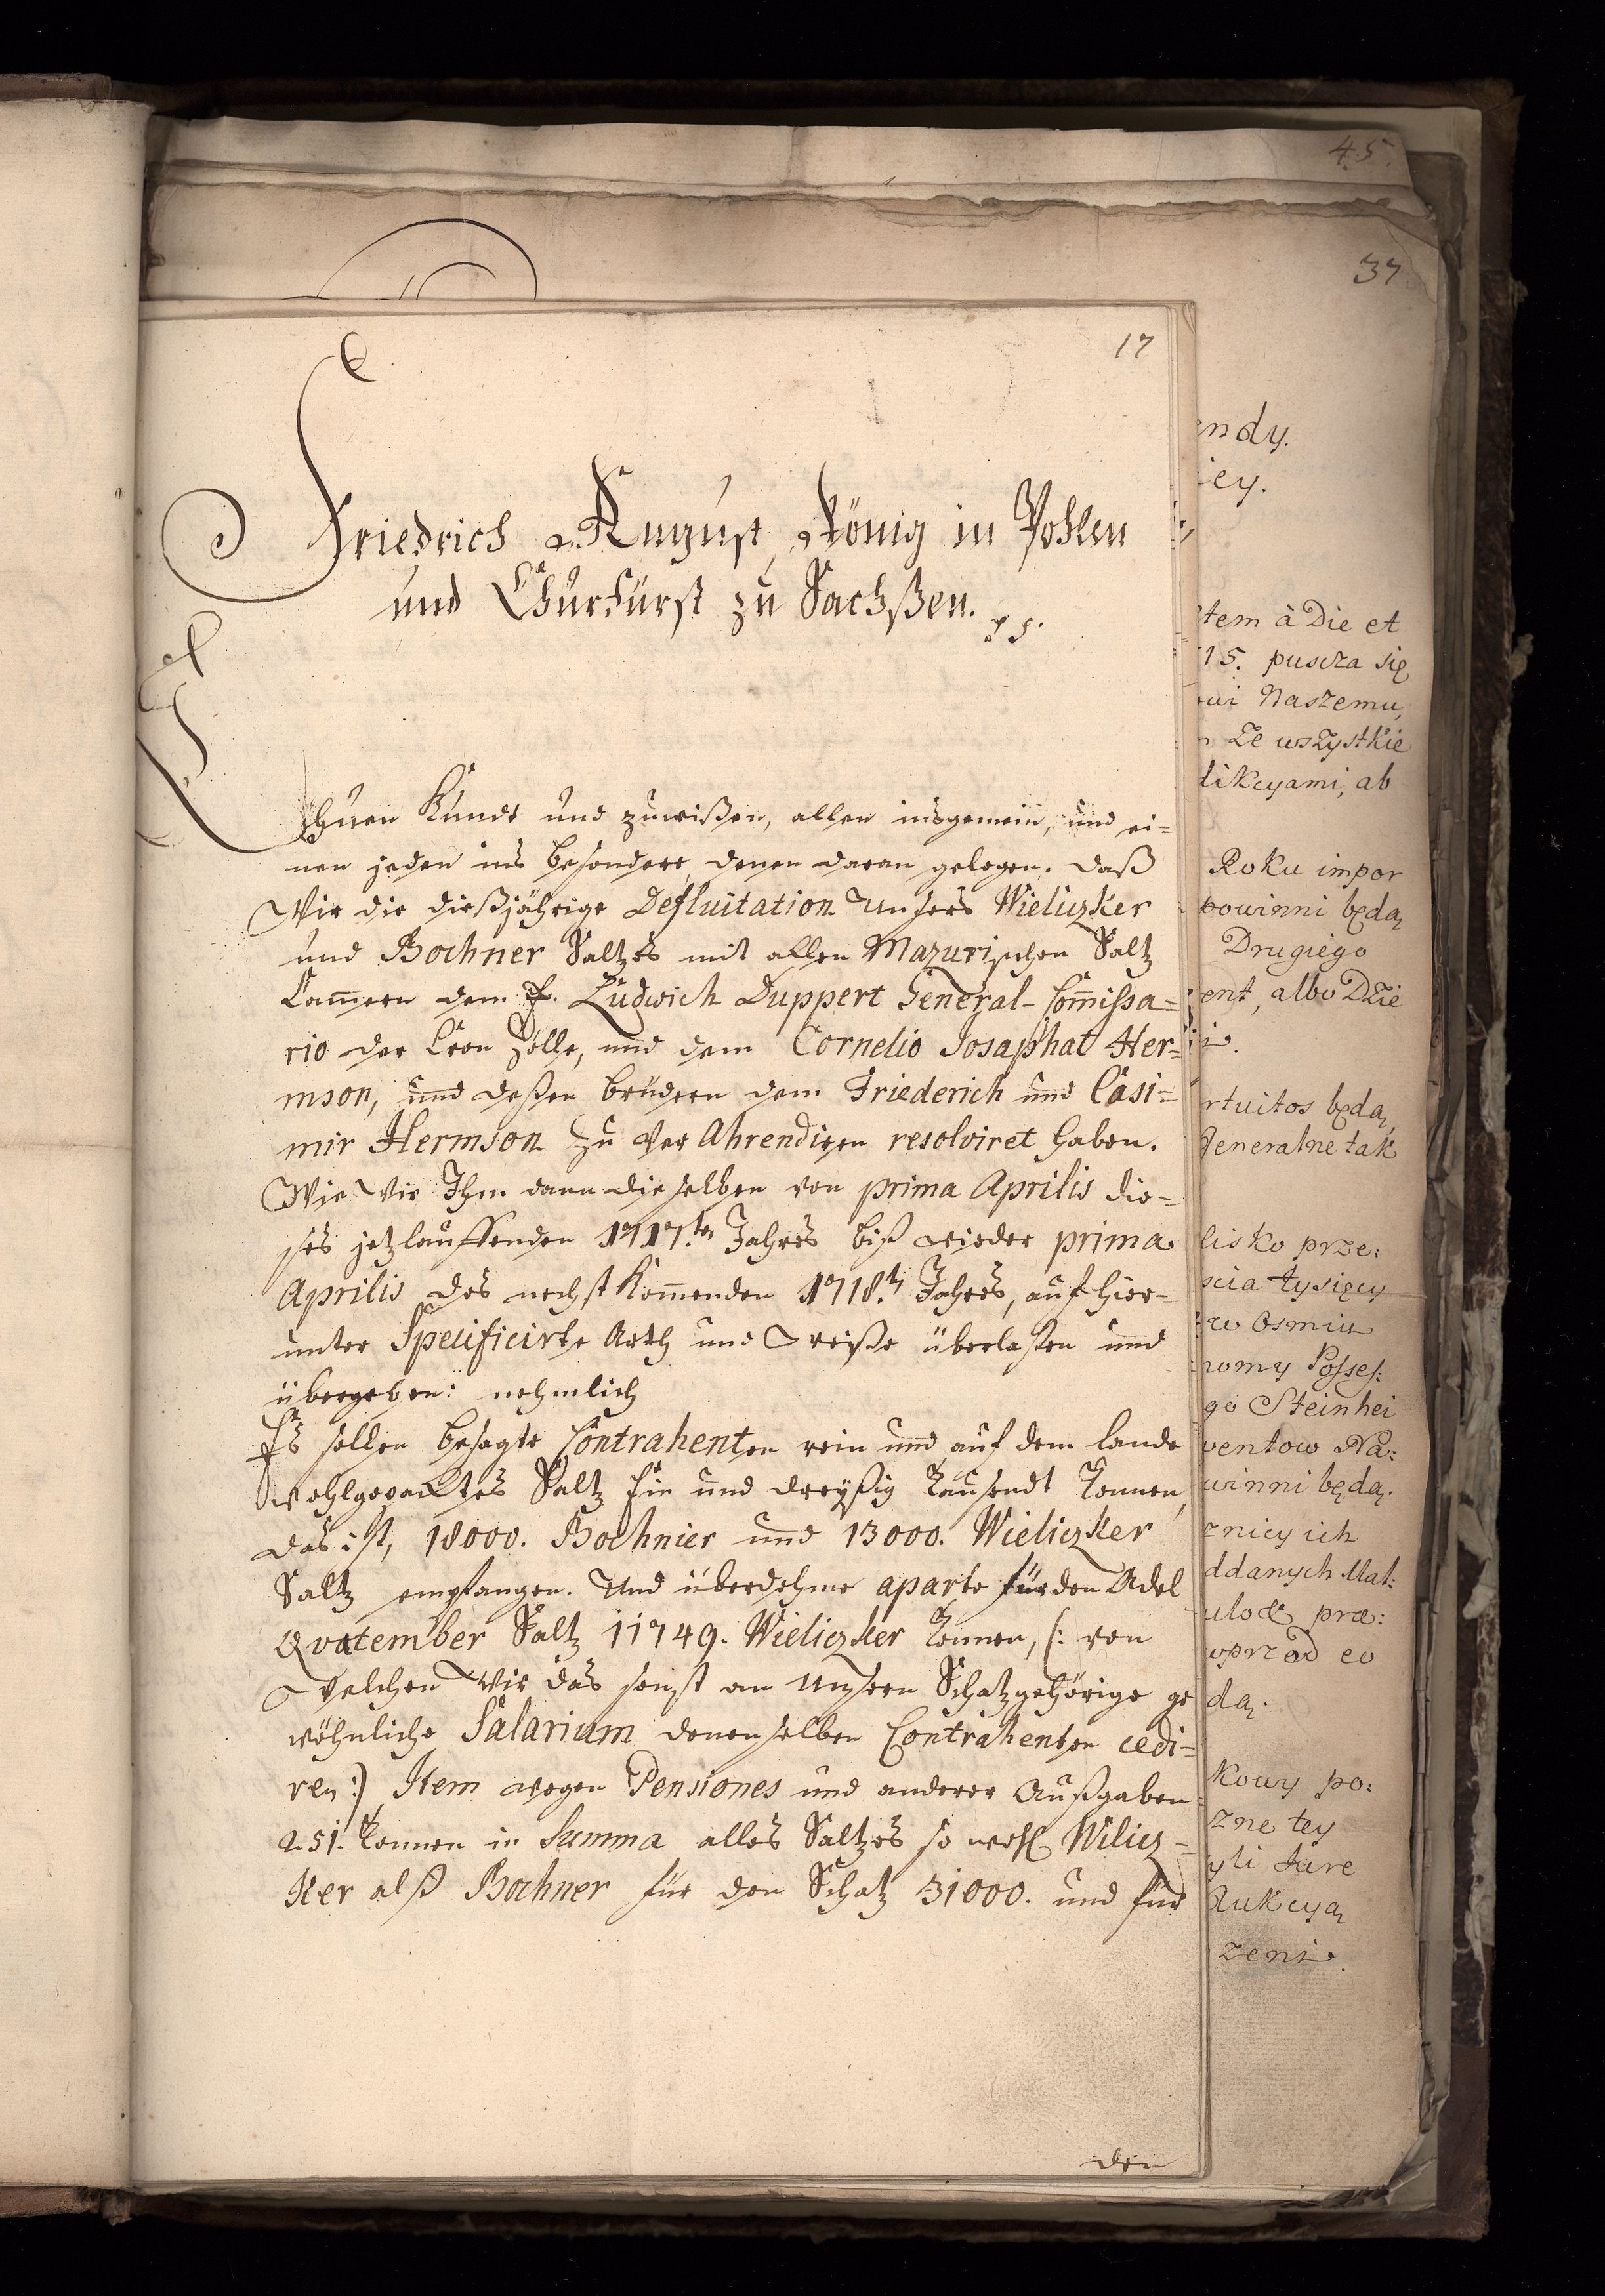 45.
37
17
Friedrich August, König in Pohlen
und Churfürst zu Sachßen.
Thuen Kundt und zuwißen, allen insgemein, und ei=
nen jeden ins besondere, denen daran gelegen. Daß
Wir die dießjährige Defluitation Unsers Wieliczker
und Bochner Saltzes mit allen Mazurischen Saltz
Cammern dem H. Ludwich Duppert General-Commissa=
rio der Cron Zölle, und dem Cornelio Josaphat Her=
mson, und deßen Brüdern dem Friederich und Casi=
mir Hermson zu ver Ahrendiren resolviret haben.
Wie Wir Ihm dann dieselben von prima Aprilis die=
ses jetzlauffenden 1717.ten Jahres biß wieder prima
Aprilis des nechst Kommenden 1718.t Jahres, auf hier=
unter Specificirte Arth und Weiße überlaßen und
übergeben: nehmlich
Es sollen besagte Contrahenten rein und auf dem Lande
wohlgepacktes Saltz Ein und dreyßig Tausendt Tonnen,
das ist, 18000. Bochnier und 13000. Wieliczker
Saltz empfangen. Und überdehme aparte für den Adel
Qvatember Saltz 11749. Wieliczker Tonnen, (: von
Welchen Wir das sonst an Unsern Schatz gehörige ge
wöhnliche Salarium denenselben Contrahenten cedi=
ren:) Item wegen Pensiones und anderer Außgaben
251. Tonnen in Summa alles Saltzes so wohl Wilicz=
Ker alß Bochner für den Schatz 31000. und für
den
endy.
iey.
tem à Die et
15. puscza się
owi Naszemu,
Ze wszystkie
dikcyami, ab
Roku impor
powinni będą
Drugiego
ent, albo Dzie
rtuitos będą
Generalne tak
lisko prze:
scia tysięcy
w Osmiu
nomy Posses:
go Steinhei
ventow Na:
winni będą.
znicy ich
ddanych Mat:
wprzod eo
dą.
Kowy po:
zne tey
yli Jure
dukcyą
zeni.